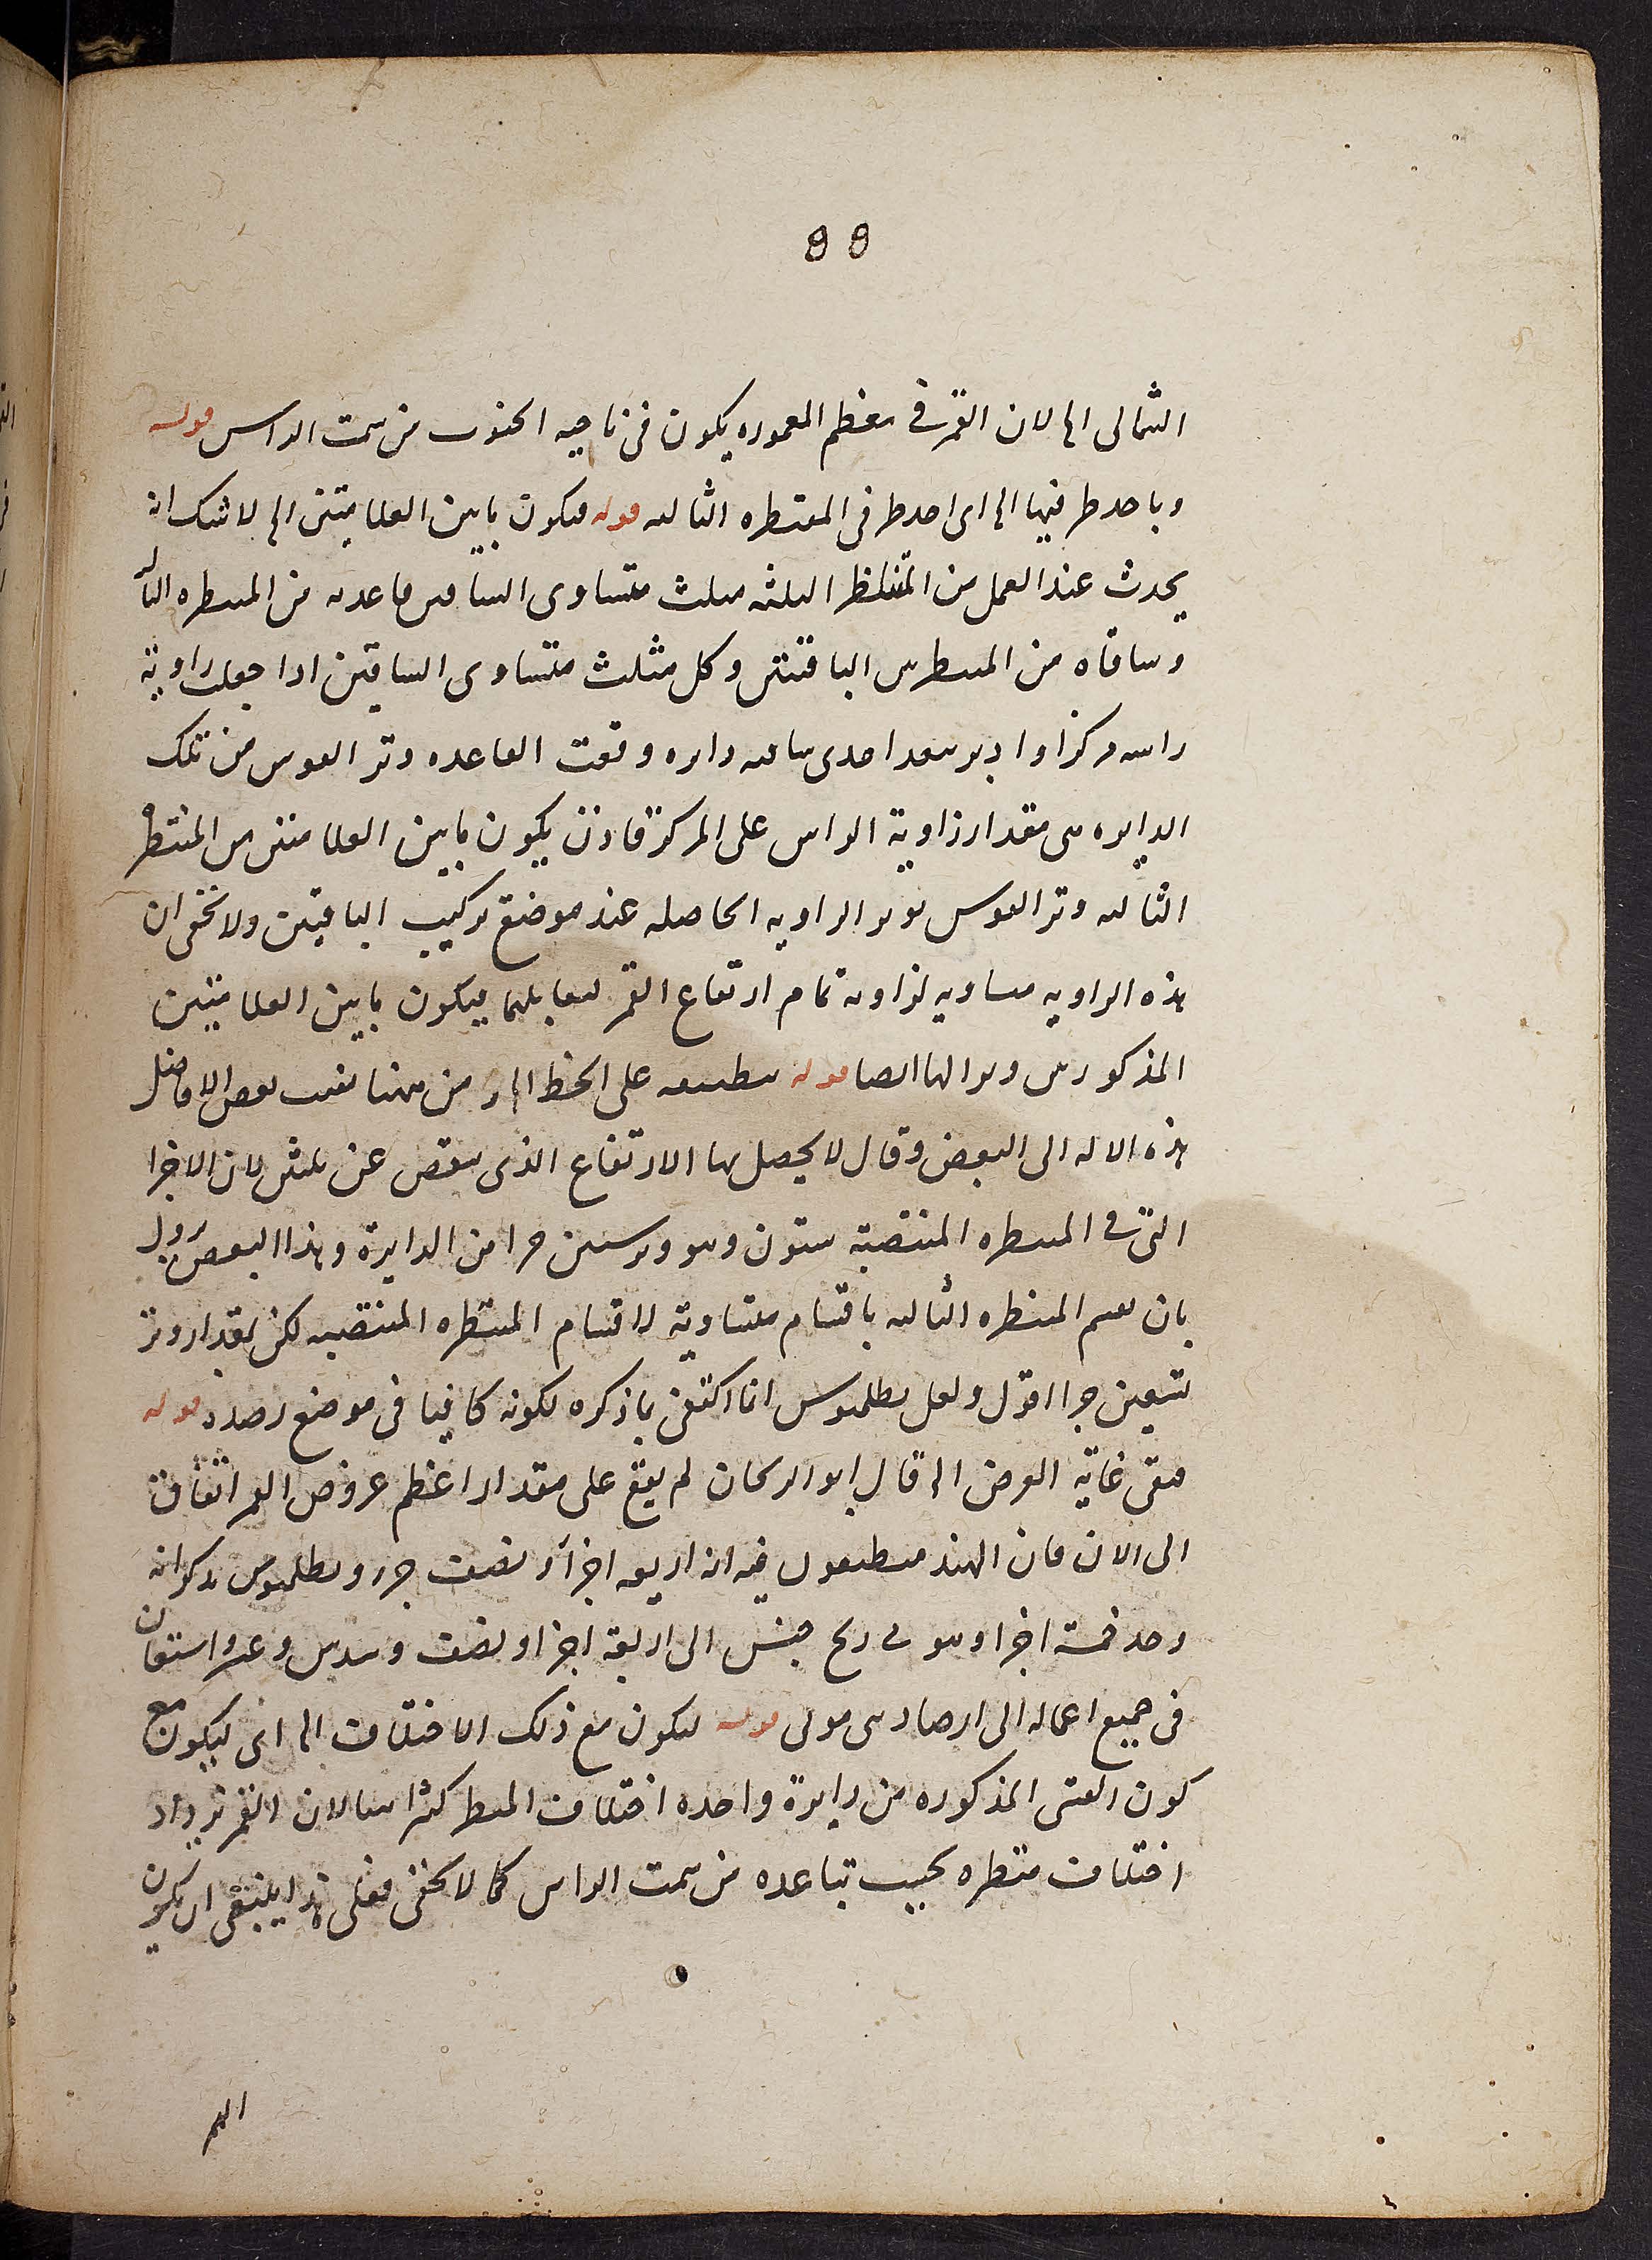 ٥٥
الشمالى الخ لان القمر فى معظم المعموره يكون فى ناحيه الجنوب من سمت الراس قوله
وباحد طرفيها الخ اى احد طرفى المسطره الثالثه قوله فيكون ما بين العلامتين الخ لا شك انه
يحدث عند العمل من المساطر الثلثه مثلث متساوى الساقين قاعدته من المسطره الثالثه
وساقاه من المسطرتين الباقيتين وكل مثلث متساوى الساقين اذا جعلت زاوية
راسه مركزا وادير ببعد احدى ساقيه دايره وقعت القاعده وتر القوس من تلك
الدايره هى مقدار زاوية الراس على المركز فاذن يكون ما بين العلامتين من المسطره
الثالثه وتر القوس توتر الزاويه الحاصله عند موضع تركيب الباقيتين ولا يخفى ان
هذه الزاويه مساويه لزاويه تمام ارتفاع القمر لتقابلهما فيكون ما بين العلامتين
المذكورتين وترا لها ايضا قوله منطبقه على الخط الخ ومن ههنا نسب بعض الافاضل
هذه الاله الى النقص وقال لا يحصل بها الارتفاع الذى ينقص عن ثلثين لان الاجزا
التى فى المسطره المنتصبة ستون وهو وتر ستين جزا من الدايرة وهذا النقص يزول
بان يقسم المسطره الثالثه باقسام متساوية لاقسام المسطره المنتصبه لكن بمقدار وتر
تسعين جزا اقول ولعل بطلميوس انما اكتفى بما ذكره لكونه كافيا فى موضع رصده قوله
فبقى غاية العرض الخ قال ابو الريحان لم يقع على مقدار اعظم عروض القمر اتفاق
الى الان فان الهند مطبقون فيه انه اربعه اجزآ ونصف جزء وبطلميوس يذكر انه
وجد خمسة اجزا وهو فى زيج حبش الى اربعة اجزا ونصف وسدس وعشر واستعان
فى جميع اعماله الى ارصاد بنى موسى قوله ليكون مع ذلك الاختلاف الخ اى ليكون مع
كون القسى المذكوره من دايرة واحده اختلاف المنظر كثيرا لان القمر يزداد
اختلاف منظره بحسب تباعده من سمت الراس كما لا يخفى فعلى هذا ينبغى ان يكون
القمر